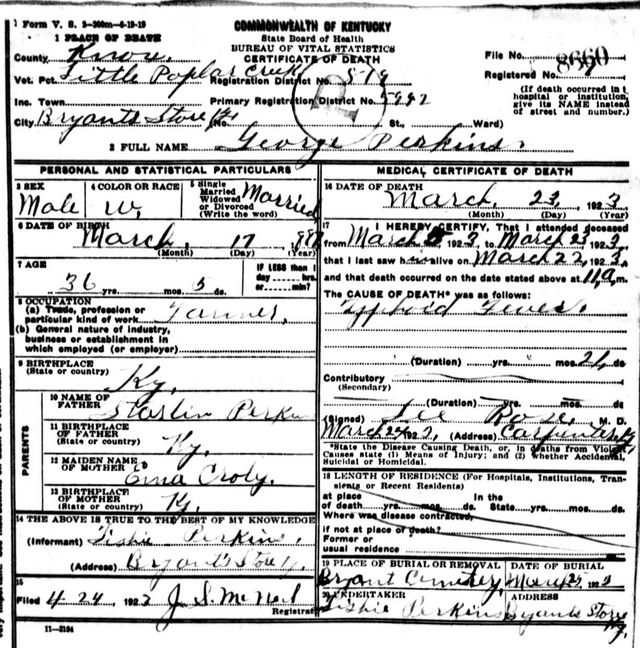 Form V. S. 2-200m-6-19-19
COMMONWEALTH OF KENTUCKY
State Board of Health
BUREAU OF VITAL STATISTICS
CERTIFICATE OF DEATH
1 PLACE OF DEATH
County Knox
File No. 8660
Vot. Pct. Little Poplar Creek Registration District No. 519
Registered No.
Inc. Town Primary Registration District No. 5992
(If death occurred in a hospital or institution, give its NAME instead of street and number.)
City Bryants Store Ky (No. St., Ward)
2 FULL NAME George Perkins.
PERSONAL AND STATISTICAL PARTICULARS
3 SEX Male
4 COLOR OR RACE W.
5 Single Married Widowed or Divorced (Write the word) Married
6 DATE OF BIRTH March, 17
(Month) (Day) (Year)
7 AGE
36 yrs. mos. 5 ds.
IF LESS than 1 day ---- hrs. or ---- min?
8 OCCUPATION
(a) Trade, profession or particular kind of work Farmer,
(b) General nature of industry, business or establishment in which employed (or employer)
9 BIRTHPLACE
(State or country) Ky.
PARENTS
10 NAME OF FATHER Starlin Perkins
11 BIRTHPLACE OF FATHER (State or country) Ky.
12 MAIDEN NAME OF MOTHER Croly.
13 BIRTHPLACE OF MOTHER (State or country) Ky.
14 THE ABOVE IS TRUE TO THE BEST OF MY KNOWLEDGE
(Informant) Perkins.
(Address) Bryant's Store Ky.
15
Filed 4 24, 1923 J. S. McNeil
Registrar
11-3194
MEDICAL CERTIFICATE OF DEATH
16 DATE OF DEATH March 23, 1923
(Month) (Day) (Year)
17 I HEREBY CERTIFY, That I attended deceased
from March 1923, to March 23, 1923,
that I last saw him alive on March 22, 1923,
and that death occurred on the date stated above at 11 a. m.
The CAUSE OF DEATH* was as follows:
Typhoid Fever.
(Duration) yrs. mos. 26 ds
Contributory
(Secondary)
(Duration) yrs. mos. ds
(Signed) Lee Rose, M. D.
March 24 1923 (Address)
*State the Disease Causing Death, or, in deaths from Violent Causes state (1) Means of Injury; and (2) whether Accidental, Suicidal or Homicidal.
18 LENGTH OF RESIDENCE (For Hospitals, Institutions, Transients or Recent Residents)
at place of death yrs. mos. ds. In the State yrs. mos. ds.
Where was disease contracted, if not at place of death?
Former or usual residence
19 PLACE OF BURIAL OR REMOVAL Bryant Cemetery,
DATE OF BURIAL Mar 1923
20 UNDERTAKER Perkins
ADDRESS Bryants Store Ky.